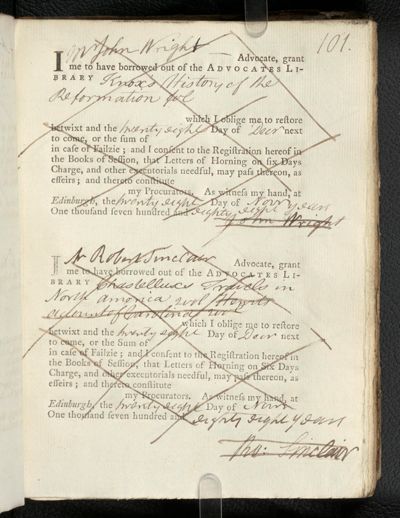 101.
I Mr John Wright Advocate, grant
me to have borrowed out of the ADVOCATES LI-
BRARY Knox's History of the
Reformation fol
which I oblige me to reſtore
betwixt and the twenty eight Day of Decr next
to come, or the ſum of
in caſe of Failzie; and I conſent to the Regiſtration hereof in
the Books of Seſſion, that Letters of Horning on ſix Days
Charge, and other executorials needful, may paſs thereon, as
effeirs; and thereto conſtitute
my Procurators. As witneſs my hand, at
Edinburgh, the twenty eight Day of Novr
One thouſand ſeven hundred and eighty eight years
John Wright
I Mr Robert Sinclair Advocate, grant
me to have borrowed out of the ADVOCATES LI-
BRARY Chastellux's Travels in
North America vol Hewits
account of Carolina vol
which I oblige me to reſtore
betwixt and the twenty eight Day of Decr next
to come, or the Sum of
in caſe of Failzie; and I conſent to the Regiſtration hereof in
the Books of Seſſion, that Letters of Horning on Six Days
Charge, and other executorials needful, may paſs thereon, as
effeirs; and thereto conſtitute
my Procurators. As witneſs my hand, at
Edinburgh, the twenty eight Day of Novr
One thouſand ſeven hundred and eighty eight years
Sinclair